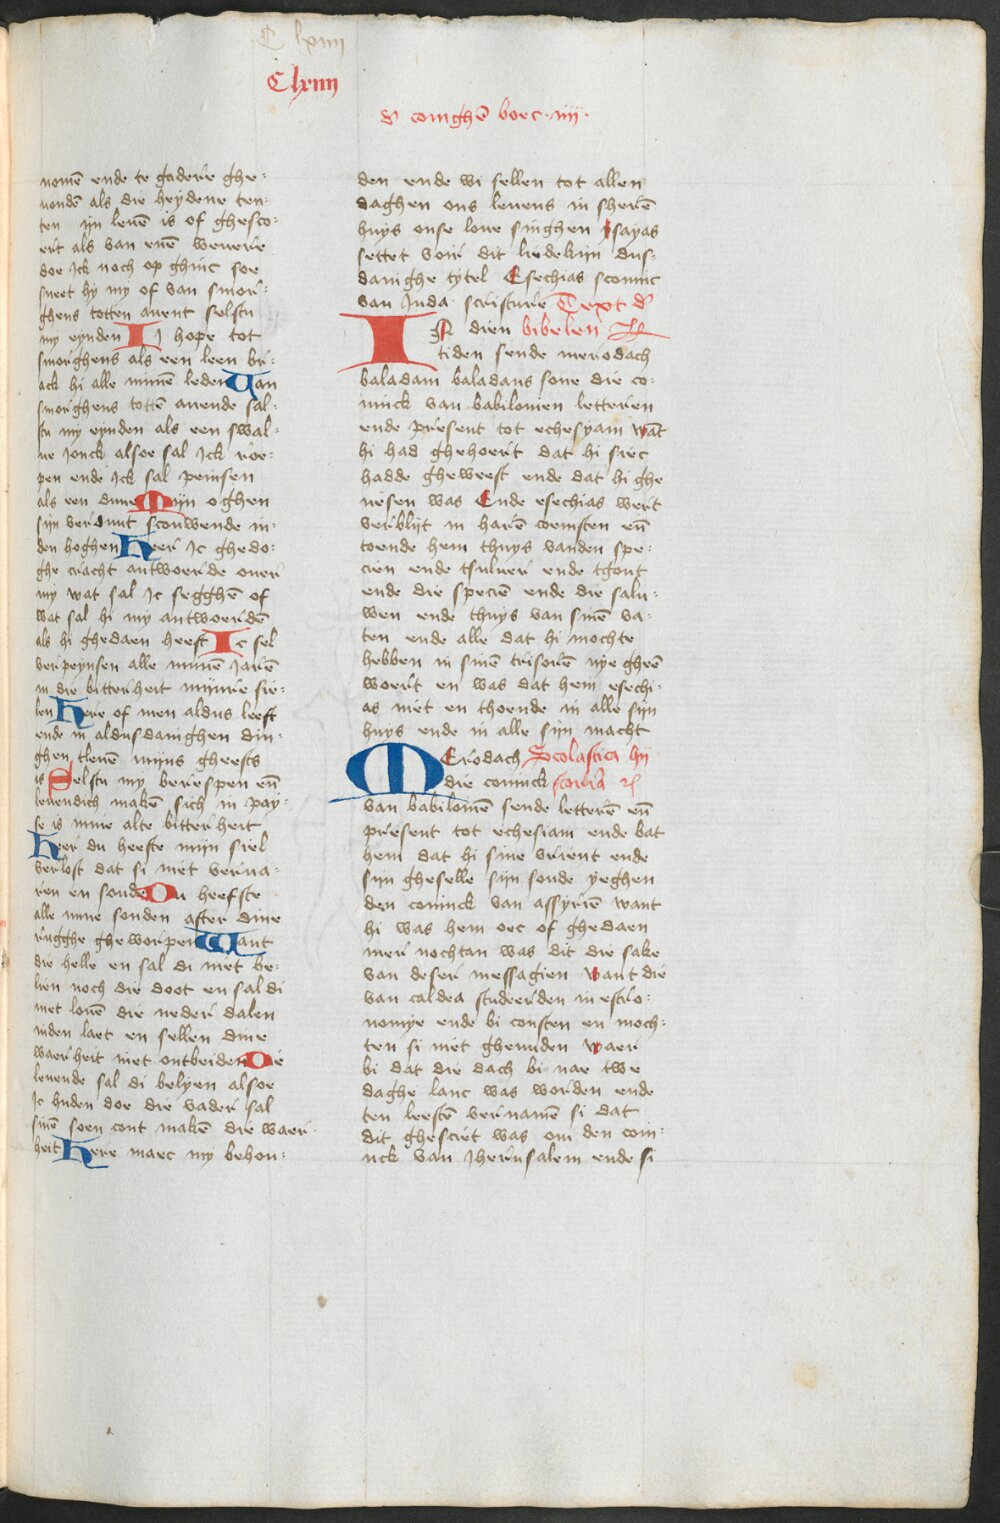 C lxiiii
Clxiiii
d' coinghē boec · iiij ·
nomē ende te gadere ghe-
uondē als die heydene ten-
ten ijn leuē is of ghesco-
ert als van enē weuere
doe ick noch op ghinc soe
sneet hy my of van smor-
ghens totten auent selstu
my eynden Ij hope tot
smorghens als een leen br-
ack hi alle minē leden Uan
smorghens tottē auende sal-
stu my eynden als een swal-
ue jonck alsoe sal jck roe-
pen ende jck sal peinsen
als een duue Mijn oghen
sijn verdunt scouwende in-
den hoghen Heer jc ghedo-
ghe cracht antwoerde ouer
my wat sal jc segghē of
wat sal hi my antwoerdē
als hi ghedaen heeft Ic sel
verpeynsen alle minē jarē
in die bitterheit mijnre sie-
len Here of men aldus leeft
ende in aldusdanighen din-
ghen tleuē mijns gheests
is Selstu my berespen eñ
leuendich makē sich in pay-
se is mine alte bitterheit
Heer du heefte mijn siel
verlost dat si niet verua-
ren en soude Du heefste
alle mine sonden after dine
rugghe gheworpen Want
die helle en sal di niet be-
lien noch die doot en sal di
niet louē die neder dalen
inden laet en sellen dine
waerheit niet ontbeiden De
leuende sal di belyen alsoe
jc huden doe die vader sal
sinē soen cont makē die waer-
heit Here maec my behou-
den ende wi sellen tot allen
daghen ons leuens in sherē
huys onse loue singhen ysayas
settet voir dit liedekijn dus-
danighe tytel Esechias sconinc
van Juda scrifture Text d'
IN dien bibelen
tiden sende merodach
baladam baladans sone die co-
ninck van babilonien letteren
ende present tot echesyam wāt
hi had ghehoert dat hi siec
hadde gheweest ende dat hi ghe
nesen was Ende esechias wert
verblijt in harē coemsten eñ
toende hem thuys vanden spe-
cien ende tsuluer ende tgout
ende die speciē ende die salu-
wen ende thuys van sinē va-
ten ende alle dat hi mochte
hebben in sinē trisorē nye gheē
woert en was dat hem esechi-
as niet en thoende in alle sijn
huys ende in alle sijn macht
MErodach Scolastica hy
die coninck storia
van babiloniē sende letterē eñ
present tot echesiam ende bat
hem dat hi sine vrient ende
sijn gheselle sijn soude yeghen
den coninck van assyriē want
hi was hem oec of ghedaen
mer nochtan was dit die sake
van deser messagien want die
van caldea studeerden in estro-
nomye ende bi consten en moch-
ten si niet ghevinden waer
bi dat die dach bi nae twe
daghe lanc was worden ende
ten leestē vernamē si dat
dit ghesciet was om den coni-
nck van jherusalem ende si